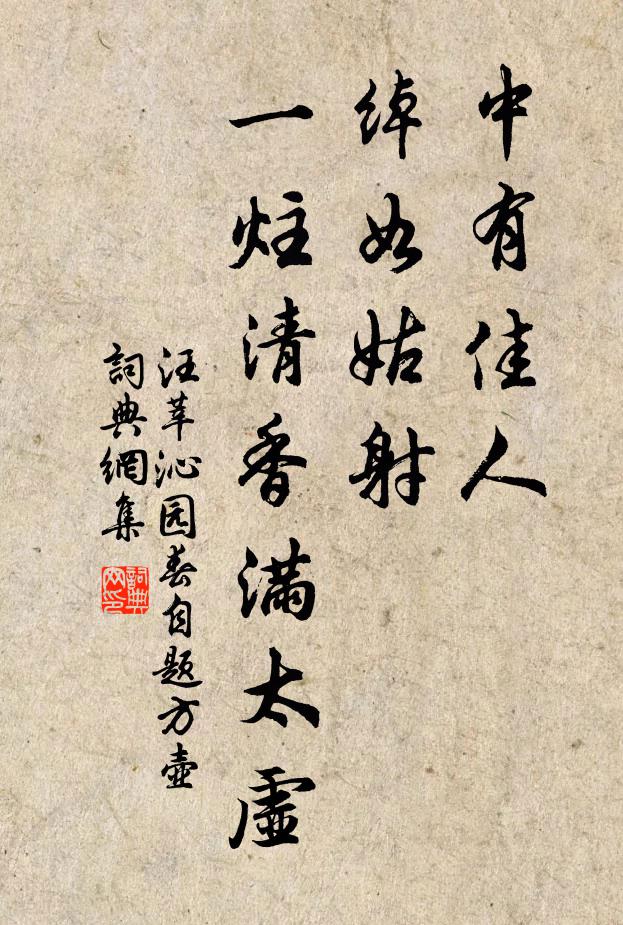 中有佳人
綽如姑射
一炷清香滿太虛
汪莘沁园春自题方壺
詞典網集
詞典網印